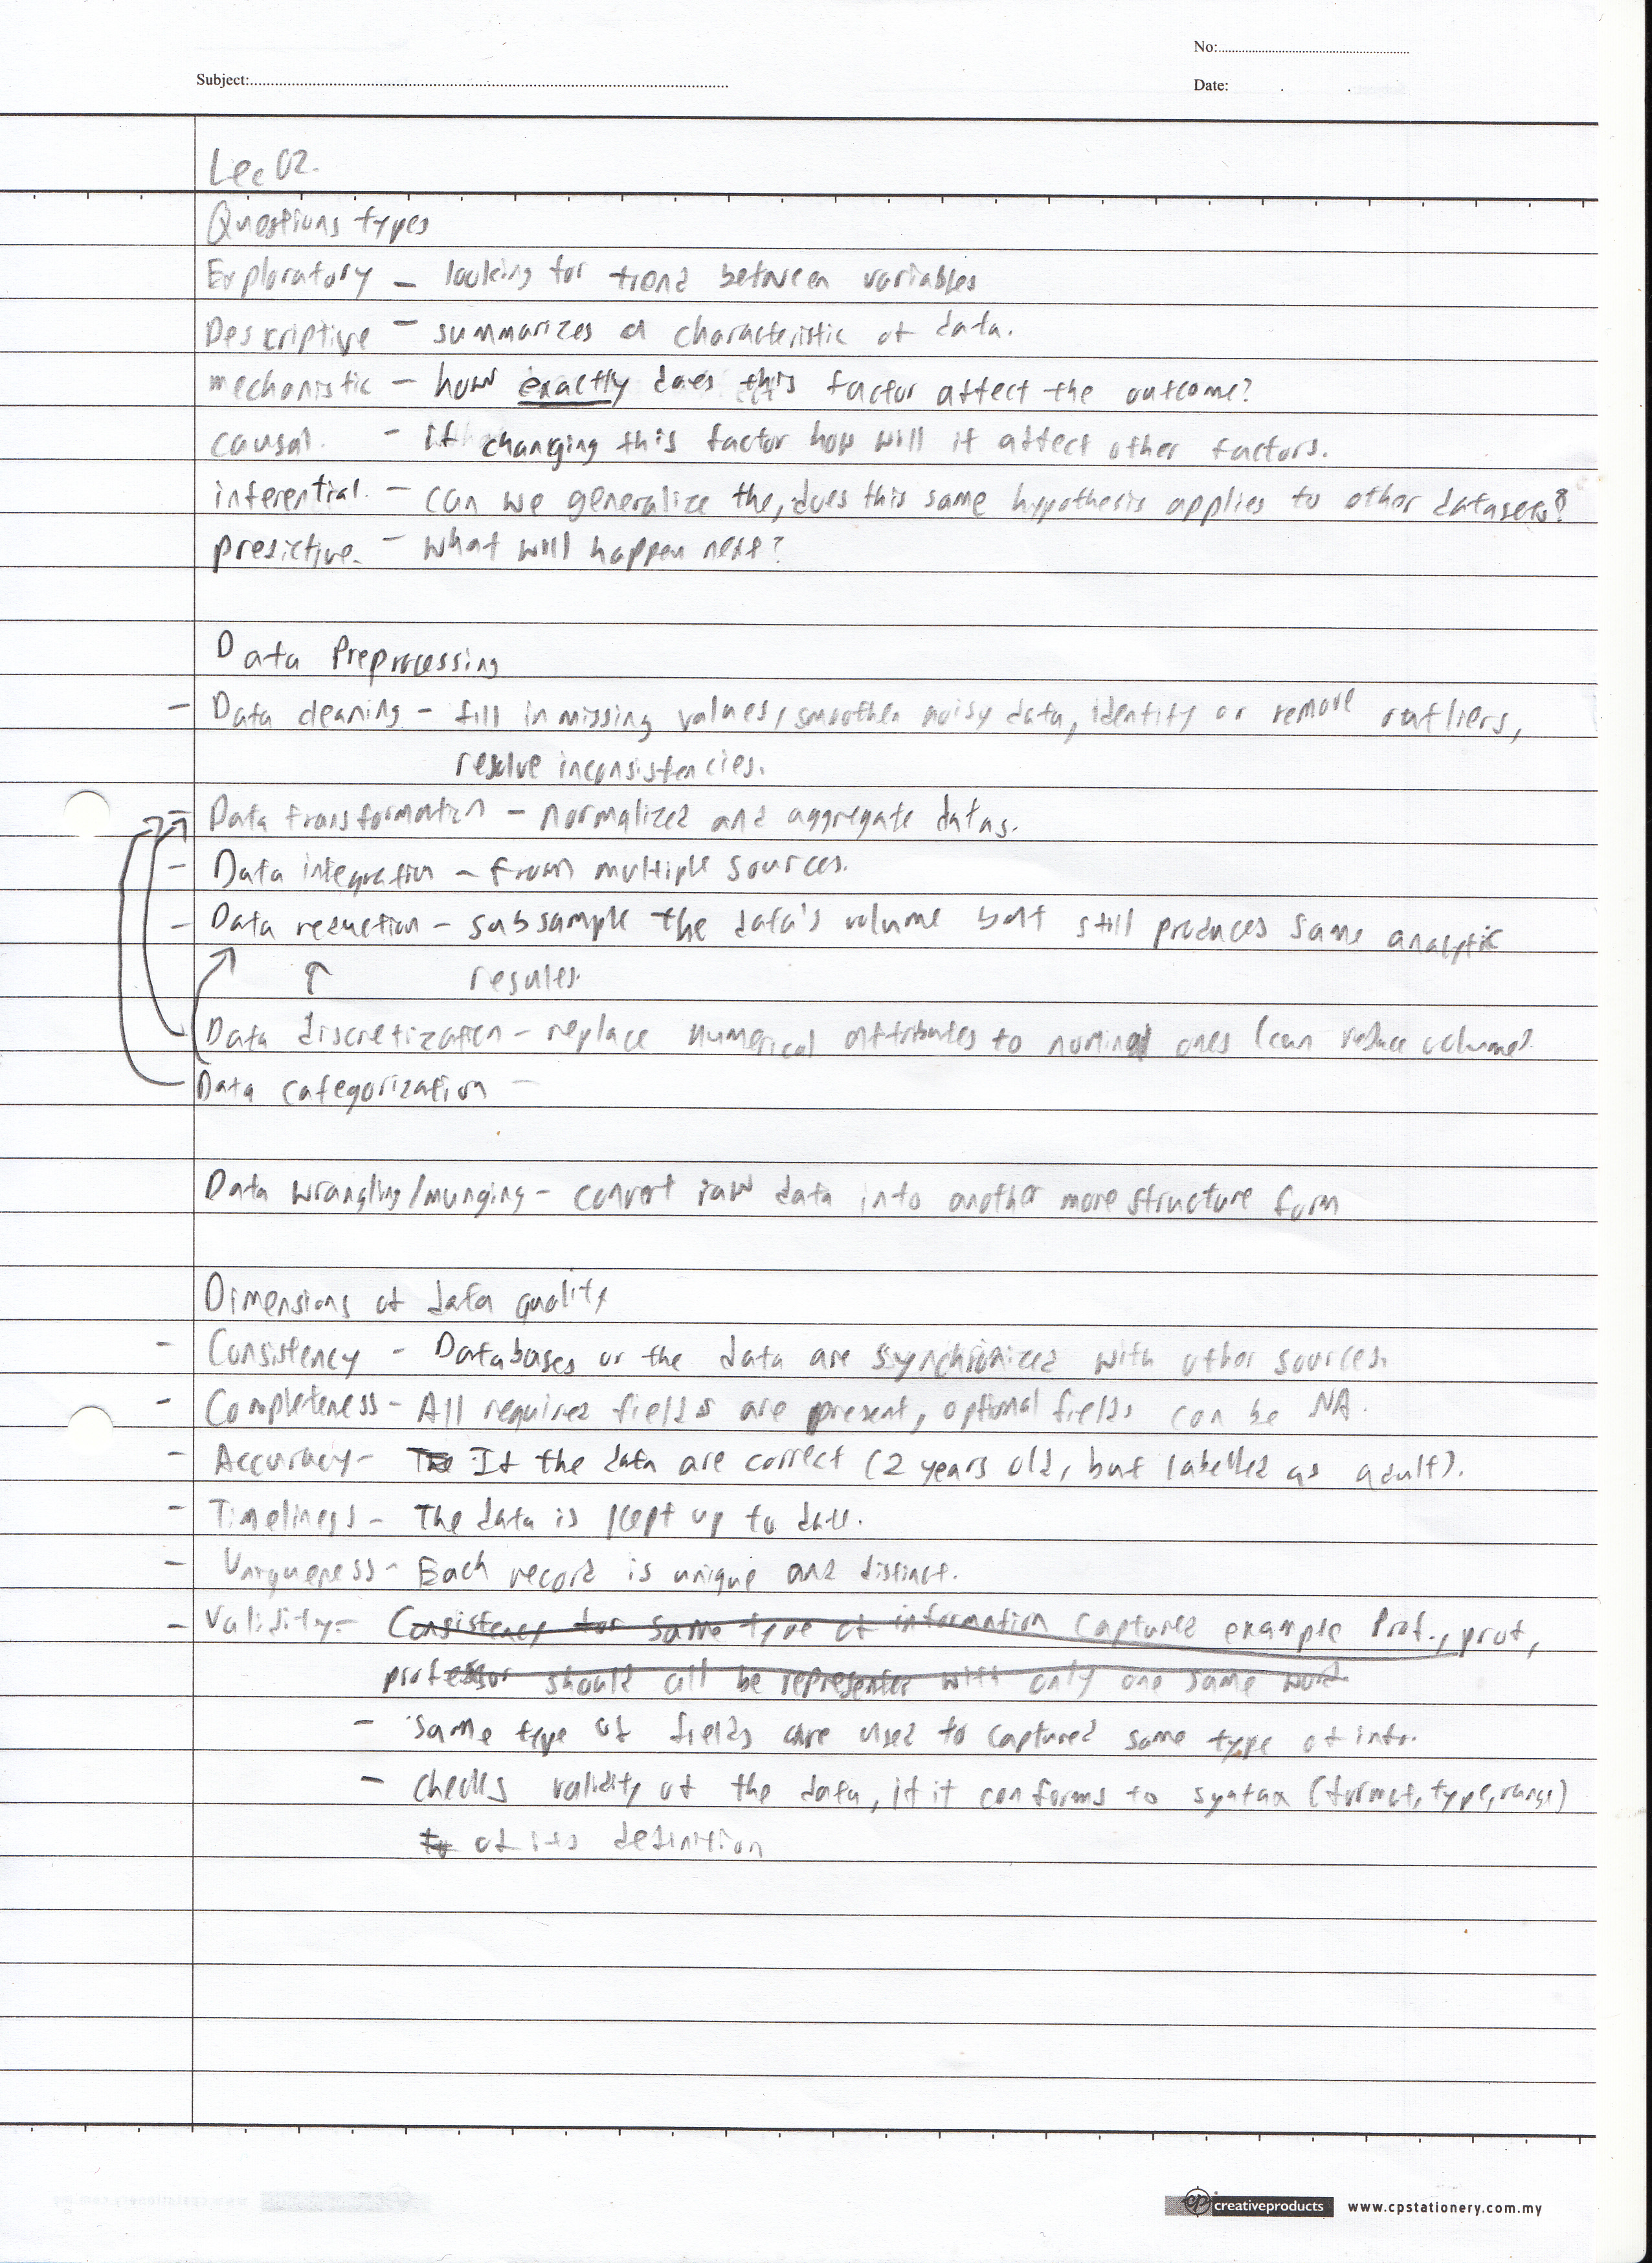 No:
Subject:
Date:
Lec 02.
Questions types
Exploratory – looking for trend between variables
Descriptive – summarizes a characteristic of data.
mechanistic – how exactly does this factor affect the outcome?
causal. – if changing this factor how will it affect other factors.
inferential. – can we generalize the, does this same hypothesis applies to other datasets?
predictive. – what will happen next?
Data Preprocessing
– Data cleaning – fill in missing values, smoothen noisy data, identify or remove outliers,
resolve inconsistencies.
– Data transformation – normalized and aggregate datas.
– Data integration – from multiple sources.
– Data reduction – subsample the data's volume but still produces same analytic
results.
Data discretization – replace numerical attributes to nominal ones (can reduce volume).
Data categorization –
Data wrangling/munging – convert raw data into another more structure form
Dimensions of data quality
– Consistency – Databases or the data are synchronized with other sources.
– Completeness – All required fields are present, optional fields can be NA.
– Accuracy – The If the data are correct (2 years old, but labelled as adult).
– Timeliness – The data is kept up to date.
– Uniqueness – Each record is unique and distinct.
– Validity – Consistency for same type of information captured example Prof., prof,
professor should all be represented with only one same word
– same type of fields are used to captured same type of info.
– checks validity of the data, if it conforms to syntax (format, type, range)
to of its definition
cp creativeproducts www.cpstationery.com.my